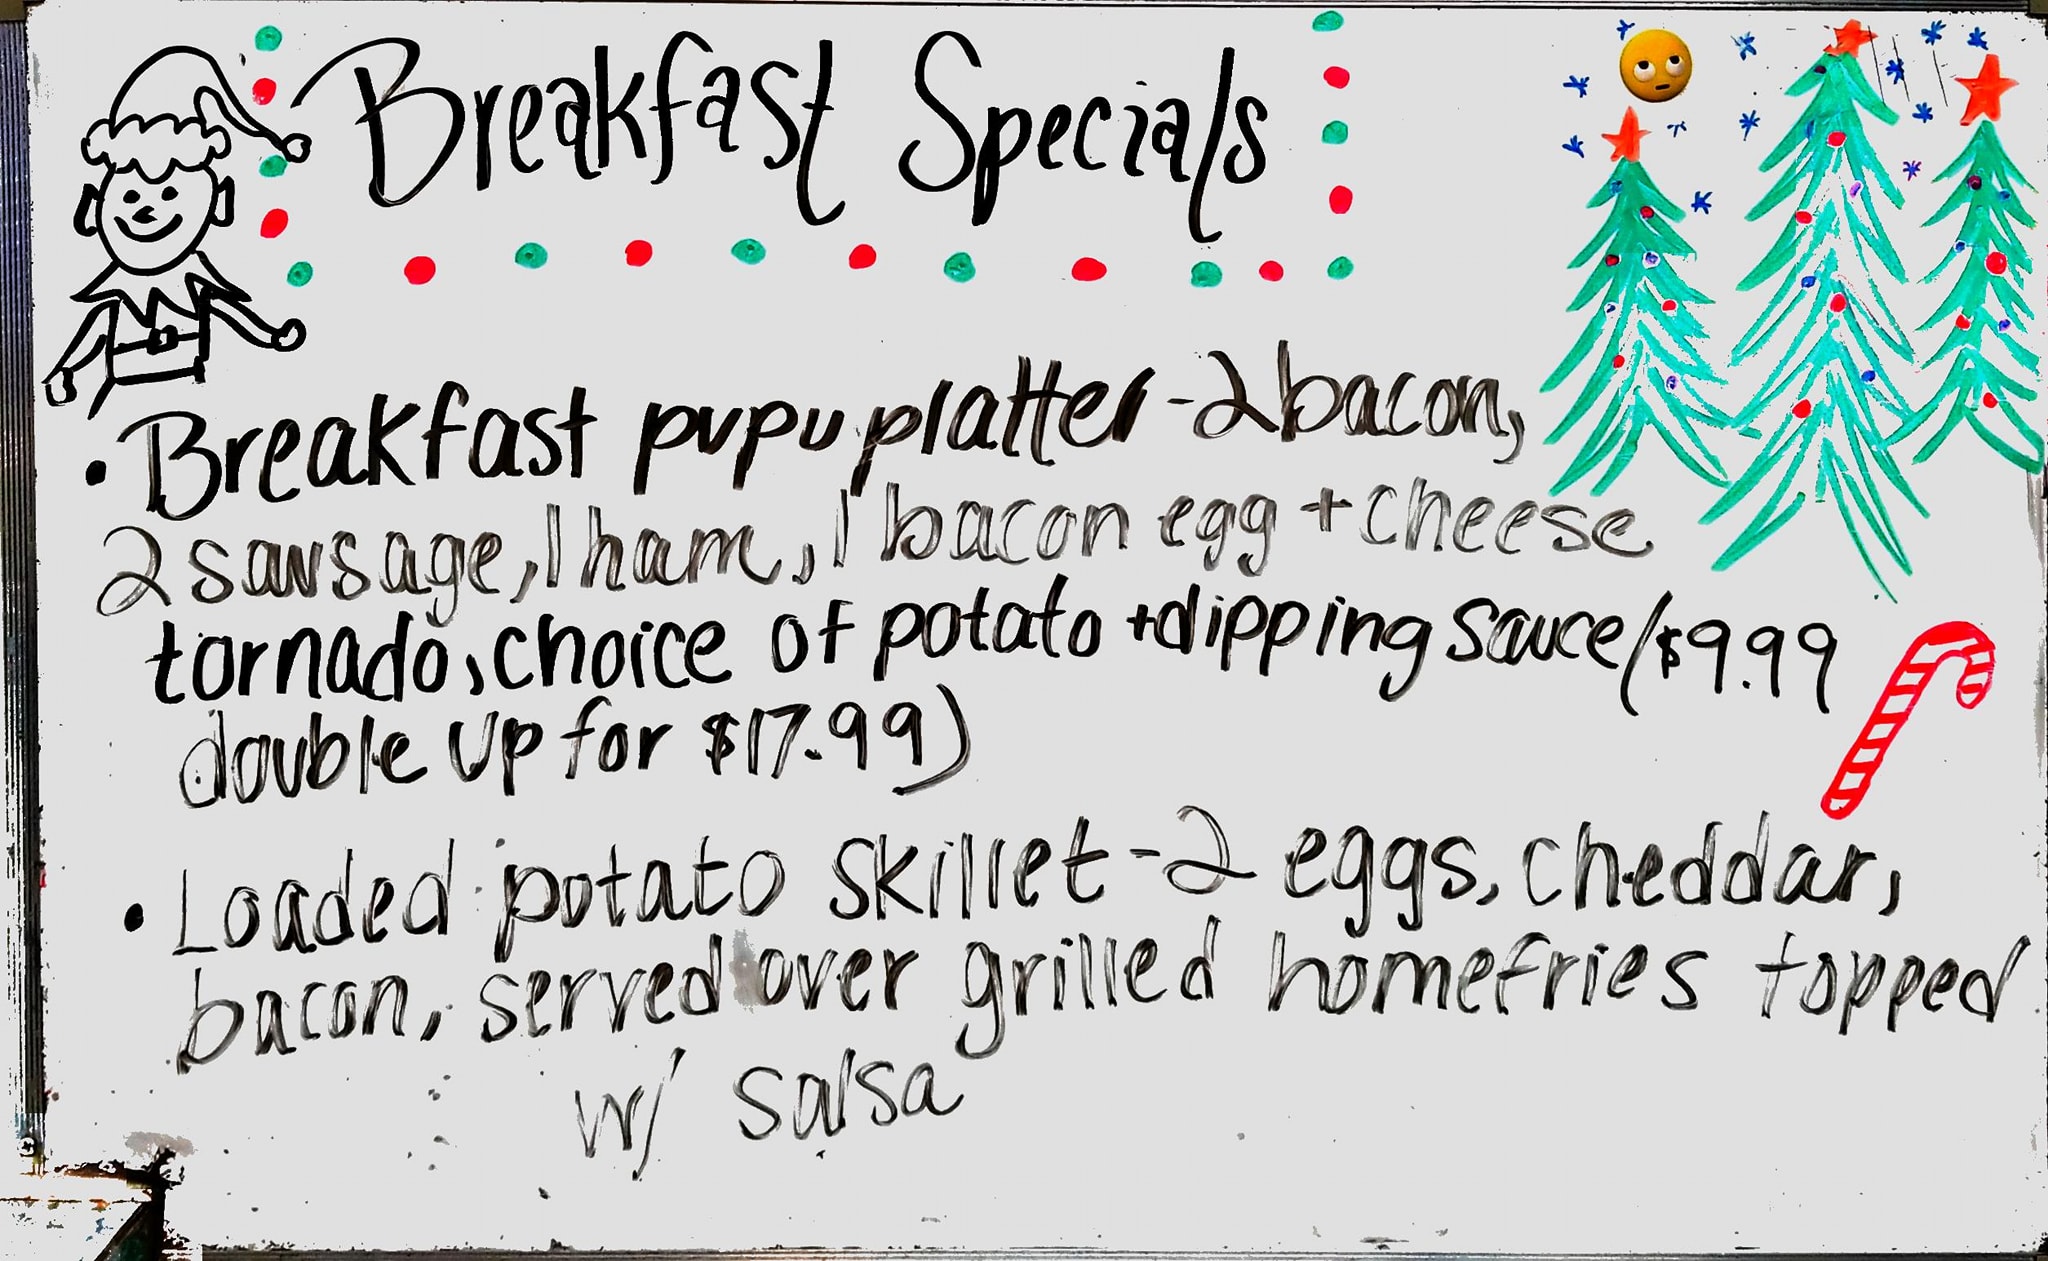 Breakfast Specials
• Breakfast pupu platter - 2 bacon,
2 sausage, 1 ham, 1 bacon egg + cheese
tornado, choice of potato + dipping sauce ($9.99
double up for $17.99)
• Loaded potato skillet - 2 eggs, cheddar,
bacon, served over grilled homefries topped
w/ salsa